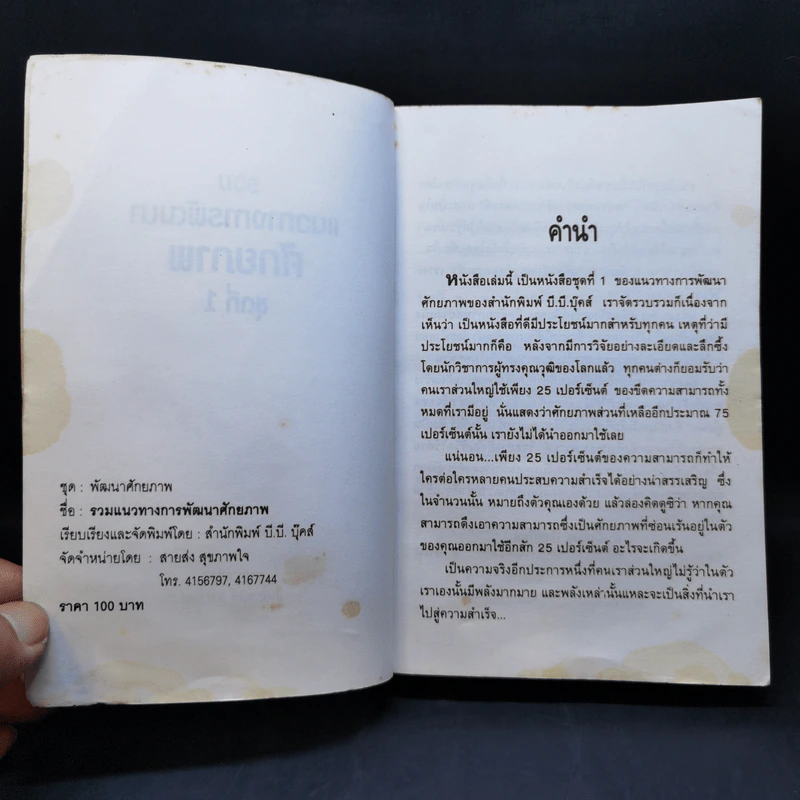 ชุด : พัฒนาศักยภาพ
ชื่อ : รวมแนวทางการพัฒนาศักยภาพ
เรียบเรียงและจัดพิมพ์โดย : สำนักพิมพ์ บี.บี. บุ๊คส์
จัดจำหน่ายโดย : สายส่ง สุขภาพใจ
โทร. 4156797, 4167744
ราคา 100 บาท
คำนำ
หนังสือเล่มนี้ เป็นหนังสือชุดที่ 1 ของแนวทางการพัฒนา
ศักยภาพของสำนักพิมพ์ บี.บี.บุ๊คส์ เราจัดรวบรวมก็เนื่องจาก
เห็นว่า เป็นหนังสือที่ดีมีประโยชน์มากสำหรับทุกคน เหตุที่ว่ามี
ประโยชน์มากก็คือ หลังจากมีการวิจัยอย่างละเอียดและลึกซึ้ง
โดยนักวิชาการผู้ทรงคุณวุฒิของโลกแล้ว ทุกคนต่างก็ยอมรับว่า
คนเราส่วนใหญ่ใช้เพียง 25 เปอร์เซ็นต์ ของขีดความสามารถทั้ง
หมดที่เรามีอยู่ นั่นแสดงว่าศักยภาพส่วนที่เหลืออีกประมาณ 75
เปอร์เซ็นต์นั้น เรายังไม่ได้นำออกมาใช้เลย
แน่นอน...เพียง 25 เปอร์เซ็นต์ของความสามารถก็ทำให้
ใครต่อใครหลายคนประสบความสำเร็จได้อย่างน่าสรรเสริญ ซึ่ง
ในจำนวนนั้น หมายถึงตัวคุณเองด้วย แล้วลองคิดดูซิว่า หากคุณ
สามารถดึงเอาความสามารถซึ่งเป็นศักยภาพที่ซ่อนเร้นอยู่ในตัว
ของคุณออกมาใช้อีกสัก 25 เปอร์เซ็นต์ อะไรจะเกิดขึ้น
เป็นความจริงอีกประการหนึ่งที่คนเราส่วนใหญ่ไม่รู้ว่าในตัว
เราเองนั้นมีพลังมากมาย และพลังเหล่านั้นแหละจะเป็นสิ่งที่นำเรา
ไปสู่ความสำเร็จ...